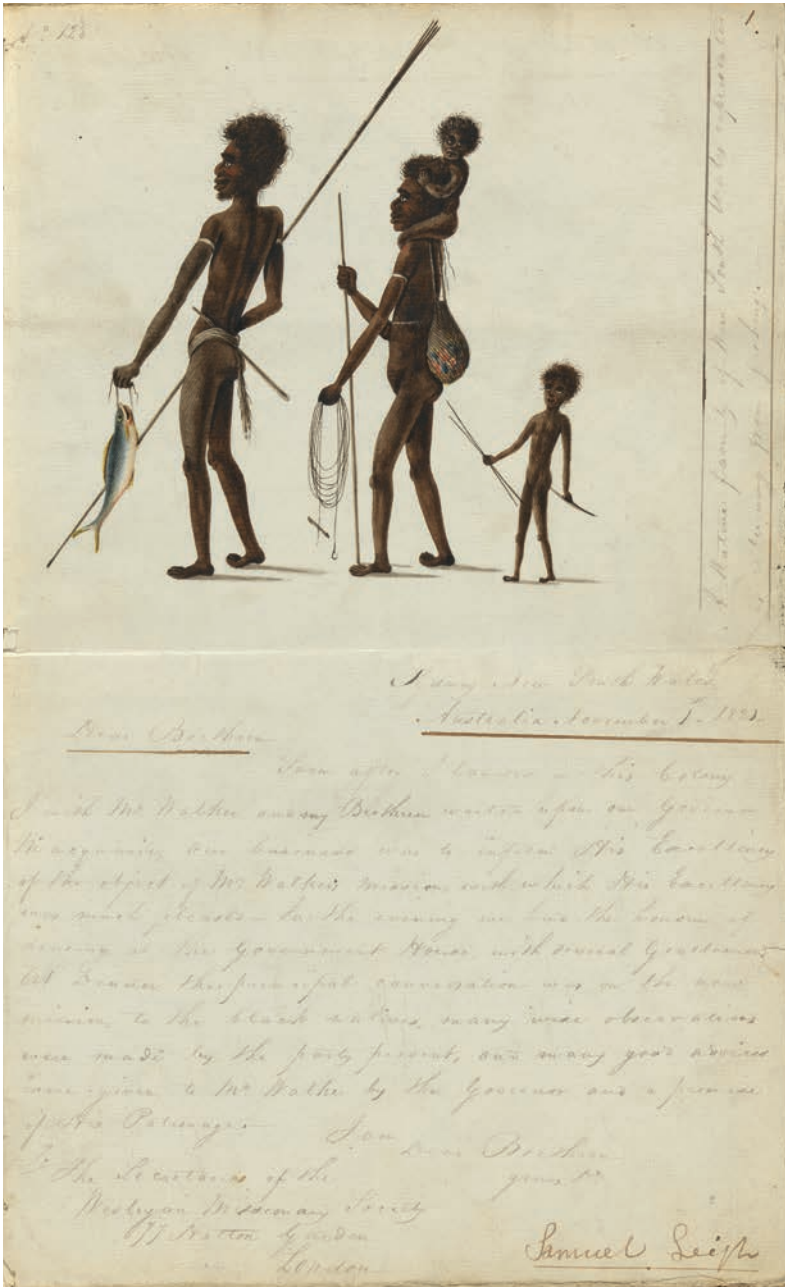 No 128
1.
A Native family of New South Wales
Sidney New South Wales
Australia November 1st 1821
Dear Brethren
Soon after I landed in this Colony
I with Mr Walker among Brethren waited upon our Governor
Macquarie, our business was to inform His Excellency
of the object of Mr Walker's mission, with which His Excellency
was much pleased. In the evening we had the honour of
dineing at the Government House with several Gentlemen
At Dinner the principal conversation was on the new
mission to the black natives, many wise observations
were made by the party present, and many good advices
were given to Mr Walker by the Governor and a promise
of His Patronage.
I am
Dear Brethren
yours
To The Secretaries of the
Wesleyan Missionary Society
77 Hatton Garden
London
Samuel Leigh